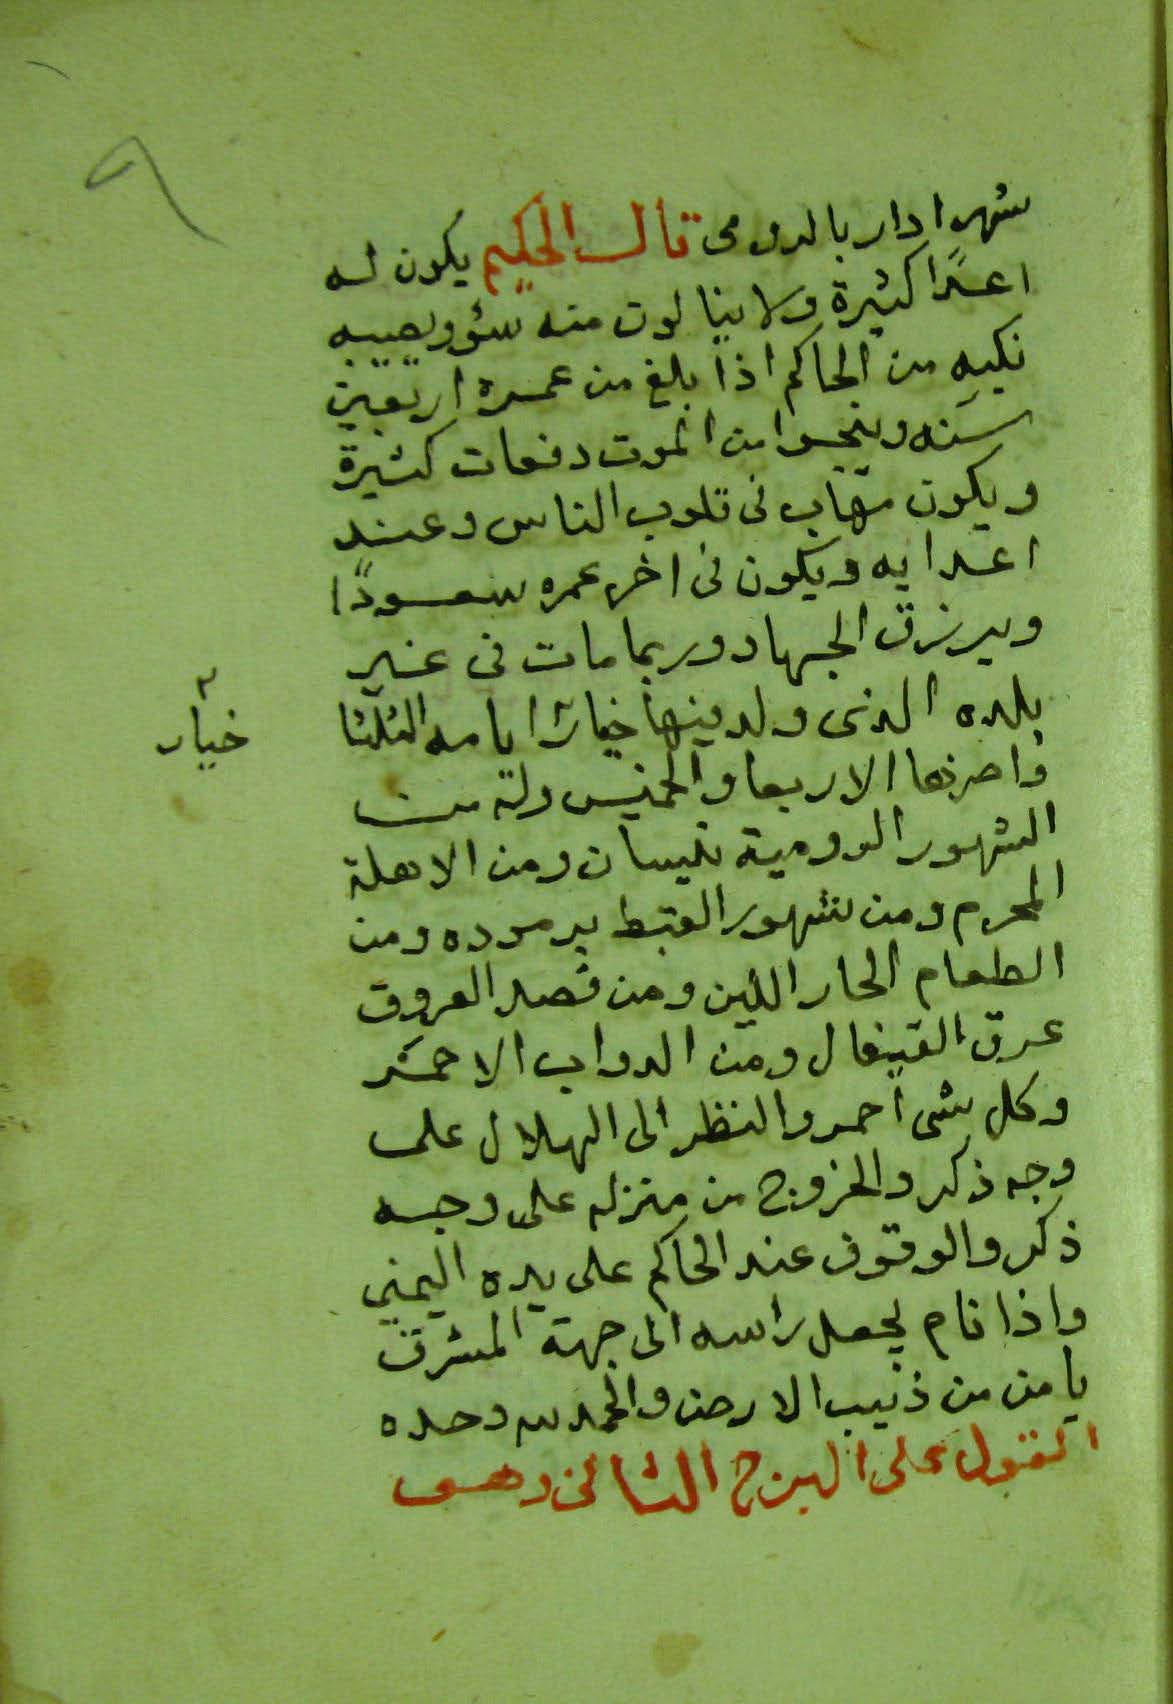 ٩
شهر ادار بالرومى قال الحكيم يكون له
اعداً كثيرة ولا ينالون منه سؤ ويصيبه
نكبه من الحاكم اذا بلغ من عمره اربعين
سنه وينجوا من الموت دفعات كثيرة
ويكون مهاب فى قلوب الناس وعند
اعدايه ويكون فى اخر عمره سعوداً
ويرزق الجهاد وربما مات فى غير
بلده الذى ولد فيها خيار ايامه الثلثا
خيار
واصرفها الاربعا والخميس وله من
الشهور الرومية نيسان ومن الاهلة
المحرم ومن شهور القبط برموده ومن
الطعام الحار اللين ومن فصد العروق
عرق القيفال ومن الدواب الاحمر
وكل شى احمر والنظر الى الهلال على
وجه ذكر والخروج من منزله على وجه
ذكر والوقوف عند الحاكم على يده اليمنى
واذا نام يجعل راسه الى جهة المشرق
يامن من ذئيب الارض والحمد لله وحده
القول على البرج الثانى وهو